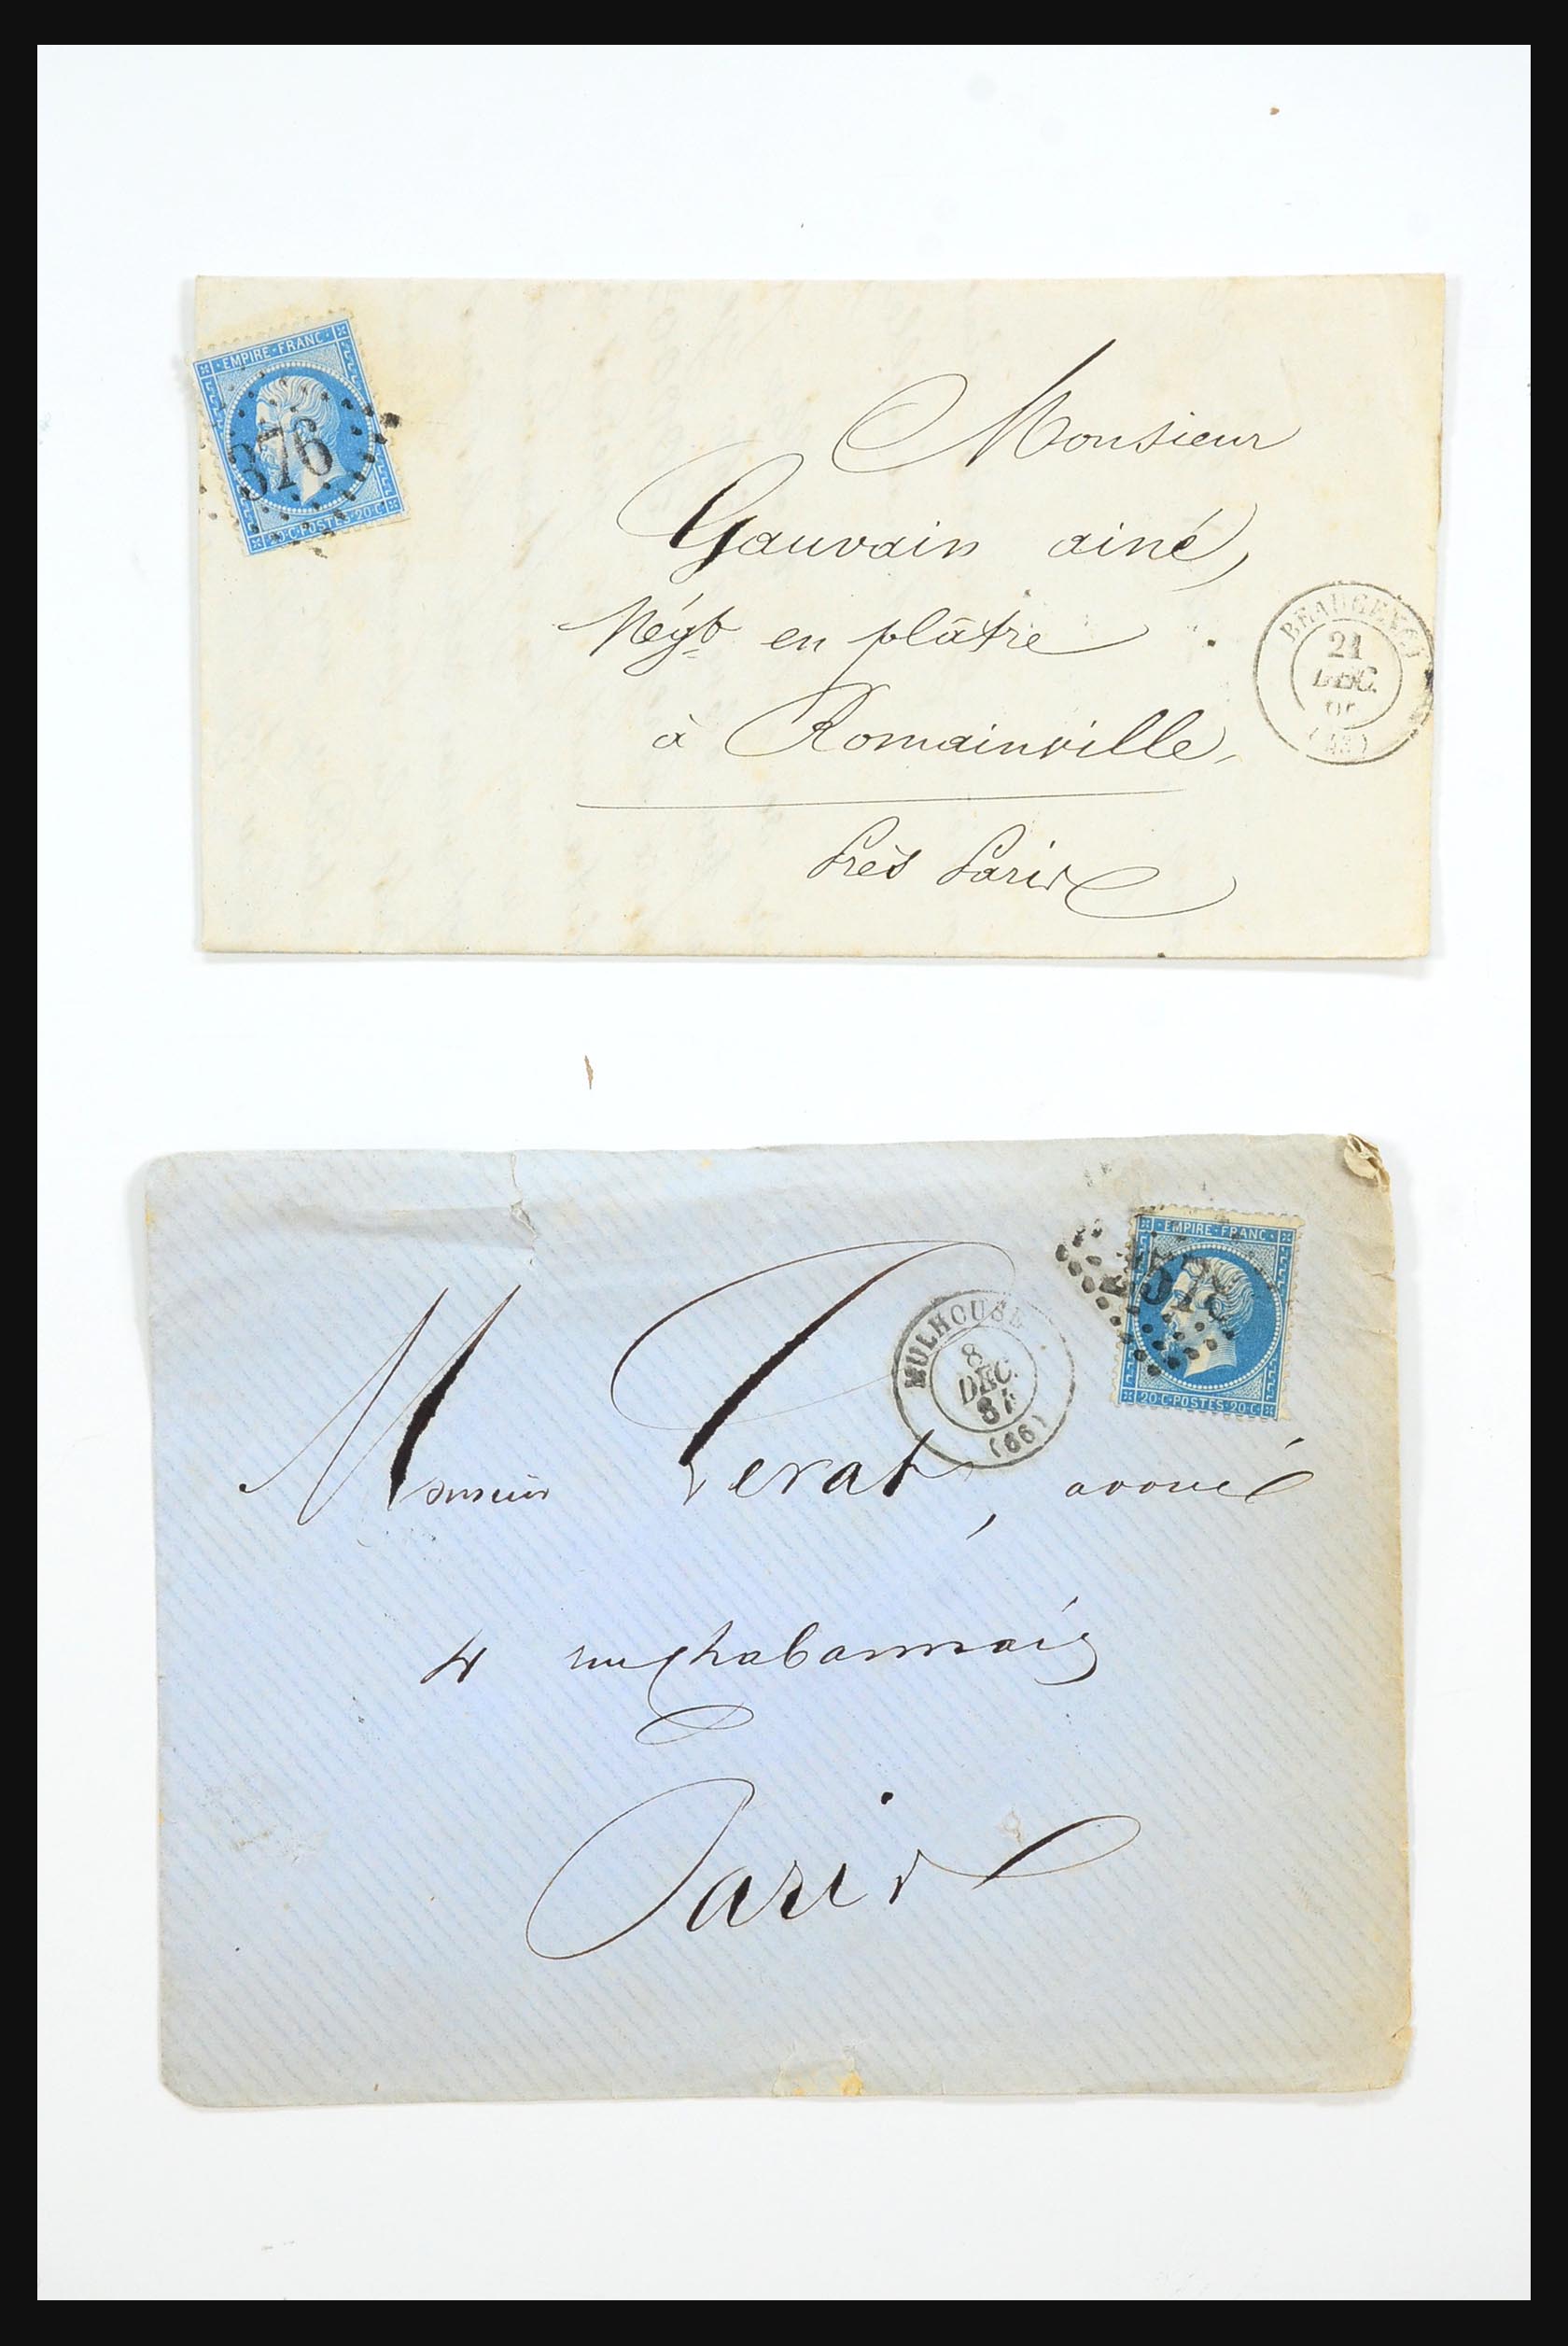 EMPIRE-FRANC
376
20-C-POSTES-20-C
Monsieur
Gauvain ainé,
Négt en plâtre
à Romainville,
près Paris
BEAUGENCY
21
DEC.
(43)
EMPIRE-FRANC
20-C-POSTES-20-C
MULHOUSE
8
DEC.
64
(66)
Monsieur Perat, avoué
4 rue Chabannais
Paris